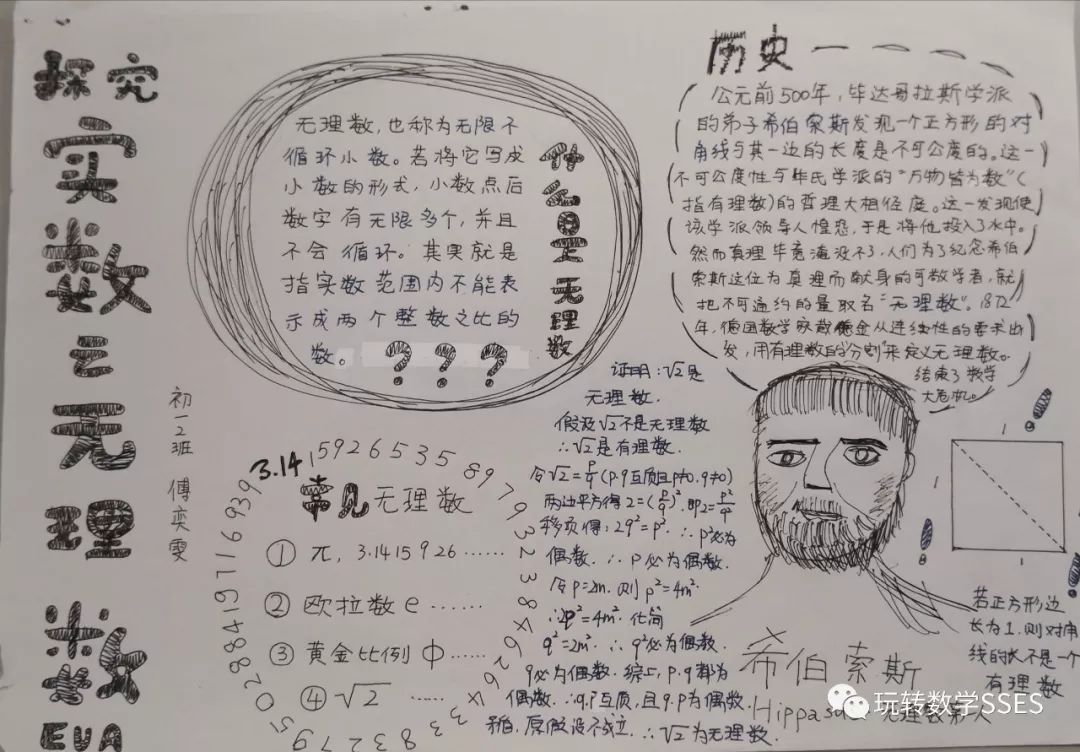 探究
实数之无理数
EVA
初一2班 傅奕雯
无理数,也称为无限不
循环小数。若将它写成
小数的形式,小数点后
数字有无限多个,并且
不会循环。其实就是
指实数范围内不能表
示成两个整数之比的
数。
???
什么是无理数
历史
公元前500年,毕达哥拉斯学派
的弟子希伯索斯发现一个正方形的对
角线与其一边的长度是不可公度的。这一
不可公度性与毕氏学派的“万物皆为数”(
指有理数)的哲理大相径庭。这一发现使
该学派领导人惶恐,于是将他投入了水中。
然而真理毕竟淹没不了,人们为了纪念希伯
索斯这位为真理而献身的可敬学者,就
把不可通约的量取名“无理数”。1872
年,德国数学家戴德金从连续性的要求出
发,用有理数的“分割”来定义无理数。
结束了数学
大危机。
3.14159265358979323846264338327950288419716939
常见无理数
① π, 3.1415926……
② 欧拉数e……
③ 黄金比例 φ……
④ √2 ……
证明:√2是
无理数.
假设√2不是无理数
∴√2是有理数.
令√2=p/q(p.q互质且p≠0.q≠0)
两边平方得 2=(p/q)².即2=p²/q²
移项得:2q²=p².∴p²必为
偶数.∴p必为偶数.
令p=2m.则p²=4m²
∴2q²=4m².化简
q²=2m².∴q²必为偶数.
q必为偶数.综上,p.q都为
偶数.∴q.p互质,且q.p为偶数
矛盾.原假设不成立.∴√2为无理数.
1
1
若正方形边
长为1.则对角
线的长不是一个
有理数
希伯索斯
Hippasus
无理数第一人
玩转数学SSES